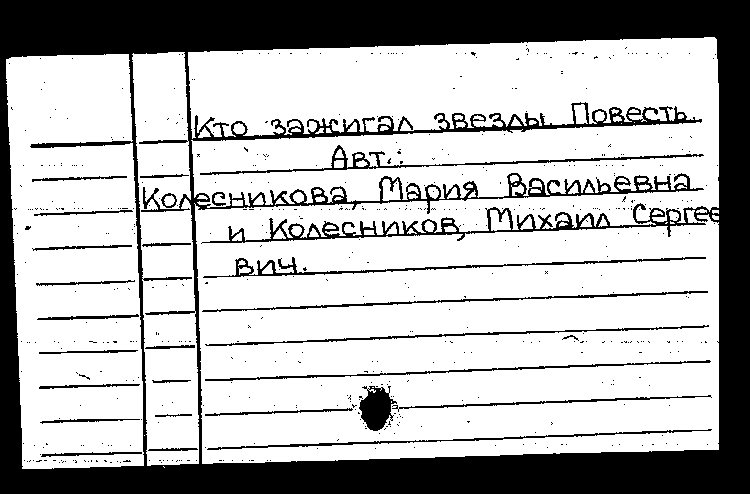 Кто зажигал звезды. Повесть.
Авт.:
Колесникова, Мария Васильевна
и Колесников, Михаил Сергее
вич.